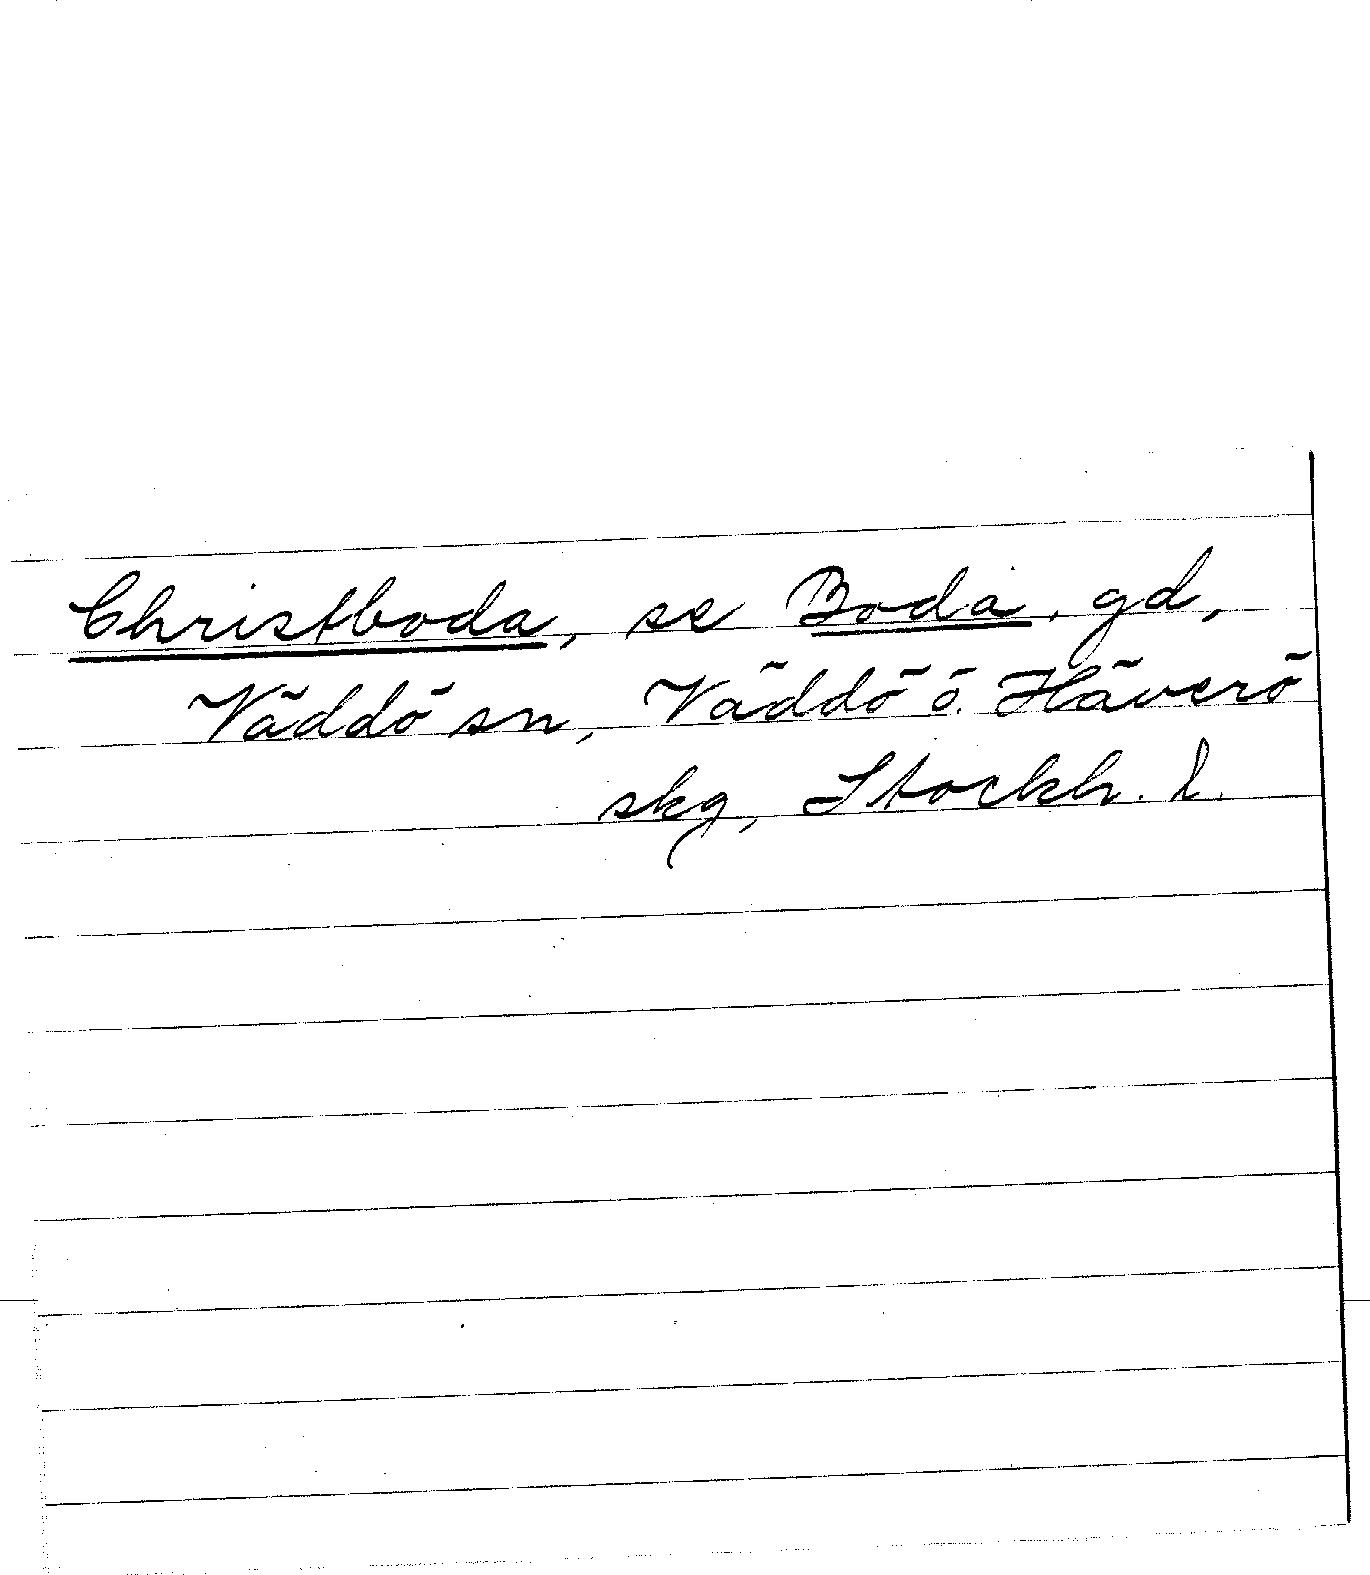 Christboda, se Boda, gd,
Väddö sn, Väddö o. Häverö
skg, Stockh. l.